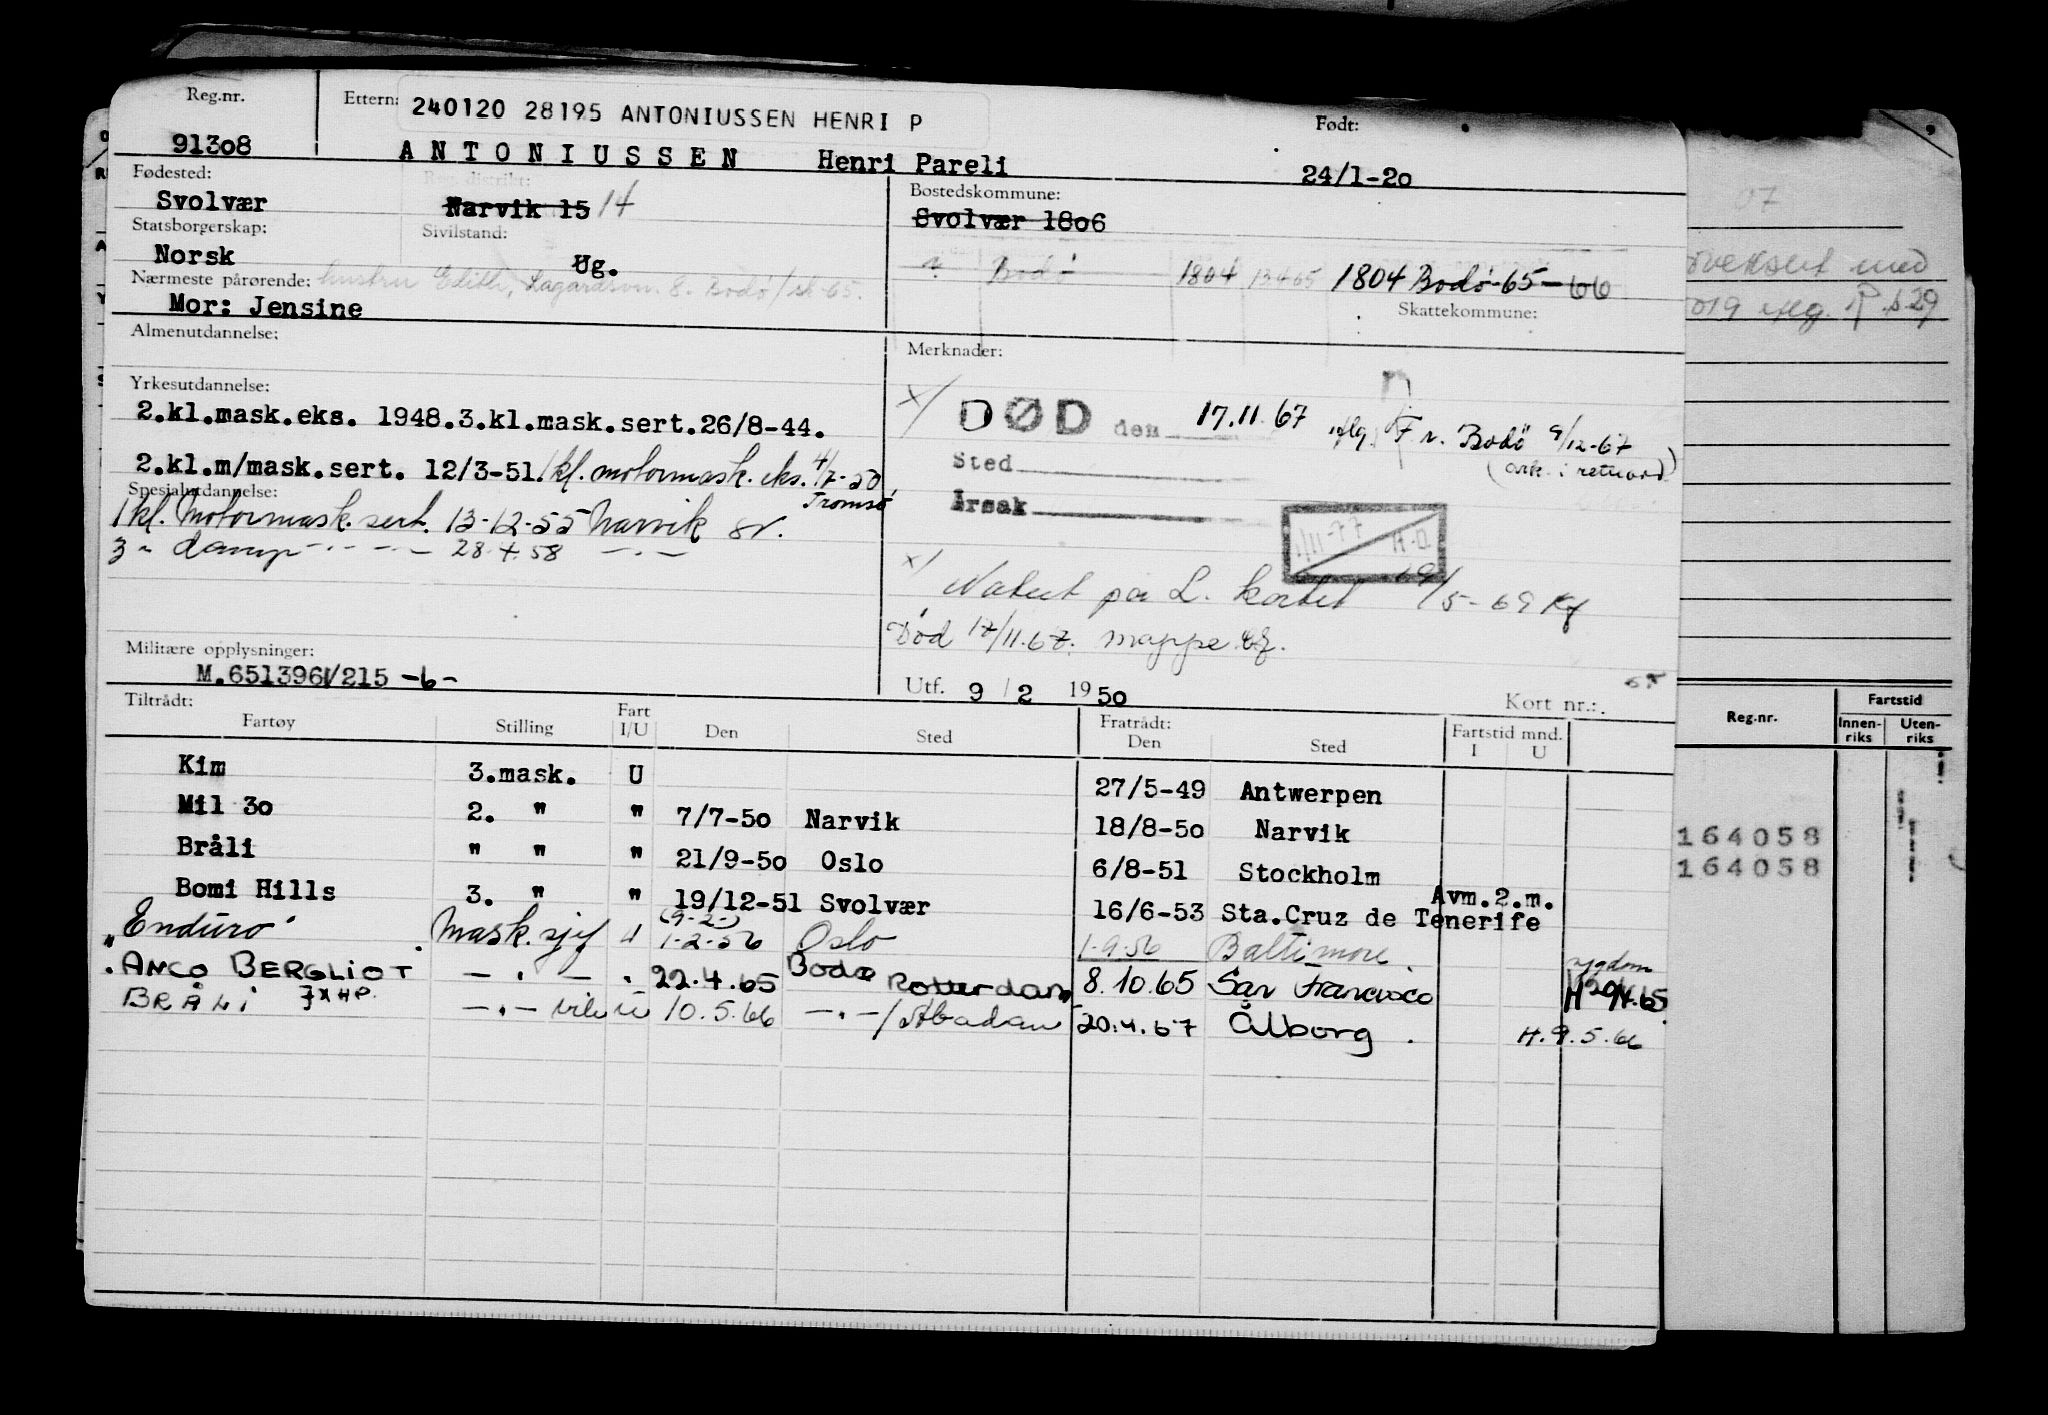 Reg.nr.
Ettern:
240120 28195 ANTONIUSSEN HENRI P
Født:
91308
ANTONIUSSEN Henri Pareli
24/1-20
Fødested:
Reg. distrikt:
Bostedskommune:
Svolvær
Narvik 15 14
Svolvær 1806
Statsborgerskap:
Sivilstand:
Norsk
Ug.
Bodø 1804 13465 1804 Bodø-65-66
Nærmeste pårørende: hustru Edith, Bodø
Skattekommune:
Mor: Jensine
Almenutdannelse:
Merknader:
Yrkesutdannelse:
2.kl.mask.eks. 1948.3.kl.mask.sert.26/8-44.
x/ DØD den 17.11.67 iflg. F.r. Bodø 9/12-67
2.kl.m/mask.sert. 12/3-51. 1 kl. motormask. eks. 4/7-50
Tromsø
Sted
Spesialutdannelse:
Årsak
1 kl. Motormask. sert. 13-12-55 Narvik sr.
3 - damp - . - . - 28.4.58 - . -
1/11-77
x/ Notert på L. kortet 19/5-69 Kf
Død 17/11.67. mappe
Militære opplysninger:
M.6513961/215 -6-
Utf. 9/2 1950
Kort nr.:
Tiltrådt:
Fartøy
Stilling
Fart
I/U
Den
Sted
Fratrådt:
Den
Sted
Fartstid mnd.
I U
Reg.nr.
Fartstid
Innen-
riks
Uten-
riks
Kim 3.mask. U 27/5-49 Antwerpen
Mil 30 2. " " 7/7-50 Narvik 18/8-50 Narvik
164058
Bråli " " " 21/9-50 Oslo 6/8-51 Stockholm
164058
Bomi Hills 3. " " 19/12-51 Svolvær 16/6-53 Sta.Cruz de Tenerife
Avm.2.m.
"Enduro" Mask.sjef U (9-2-) 1-2-56 Oslo 1-9-56 Baltimore
"ANCO BERGLIOT - " - " 22.4.65 Bodø Rotterdam 8.10.65 San Francisco
sygdom
BRÅLI 7XHP. - " - U 10.5.66 - " - / Abadan 20.4.67 Ålborg. H.9.5.66